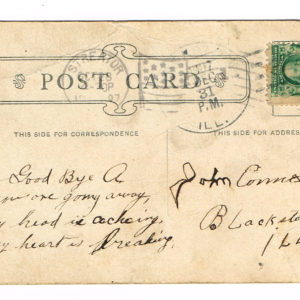 STREATOR
DEC
31
P.M.
ILL.
POST CARD
THIS SIDE FOR CORRESPONDENCE
THIS SIDE FOR ADDRESS
Good Bye A
gony away
head is acheing
heart is breaking.
John Conne
Blackst
ILL